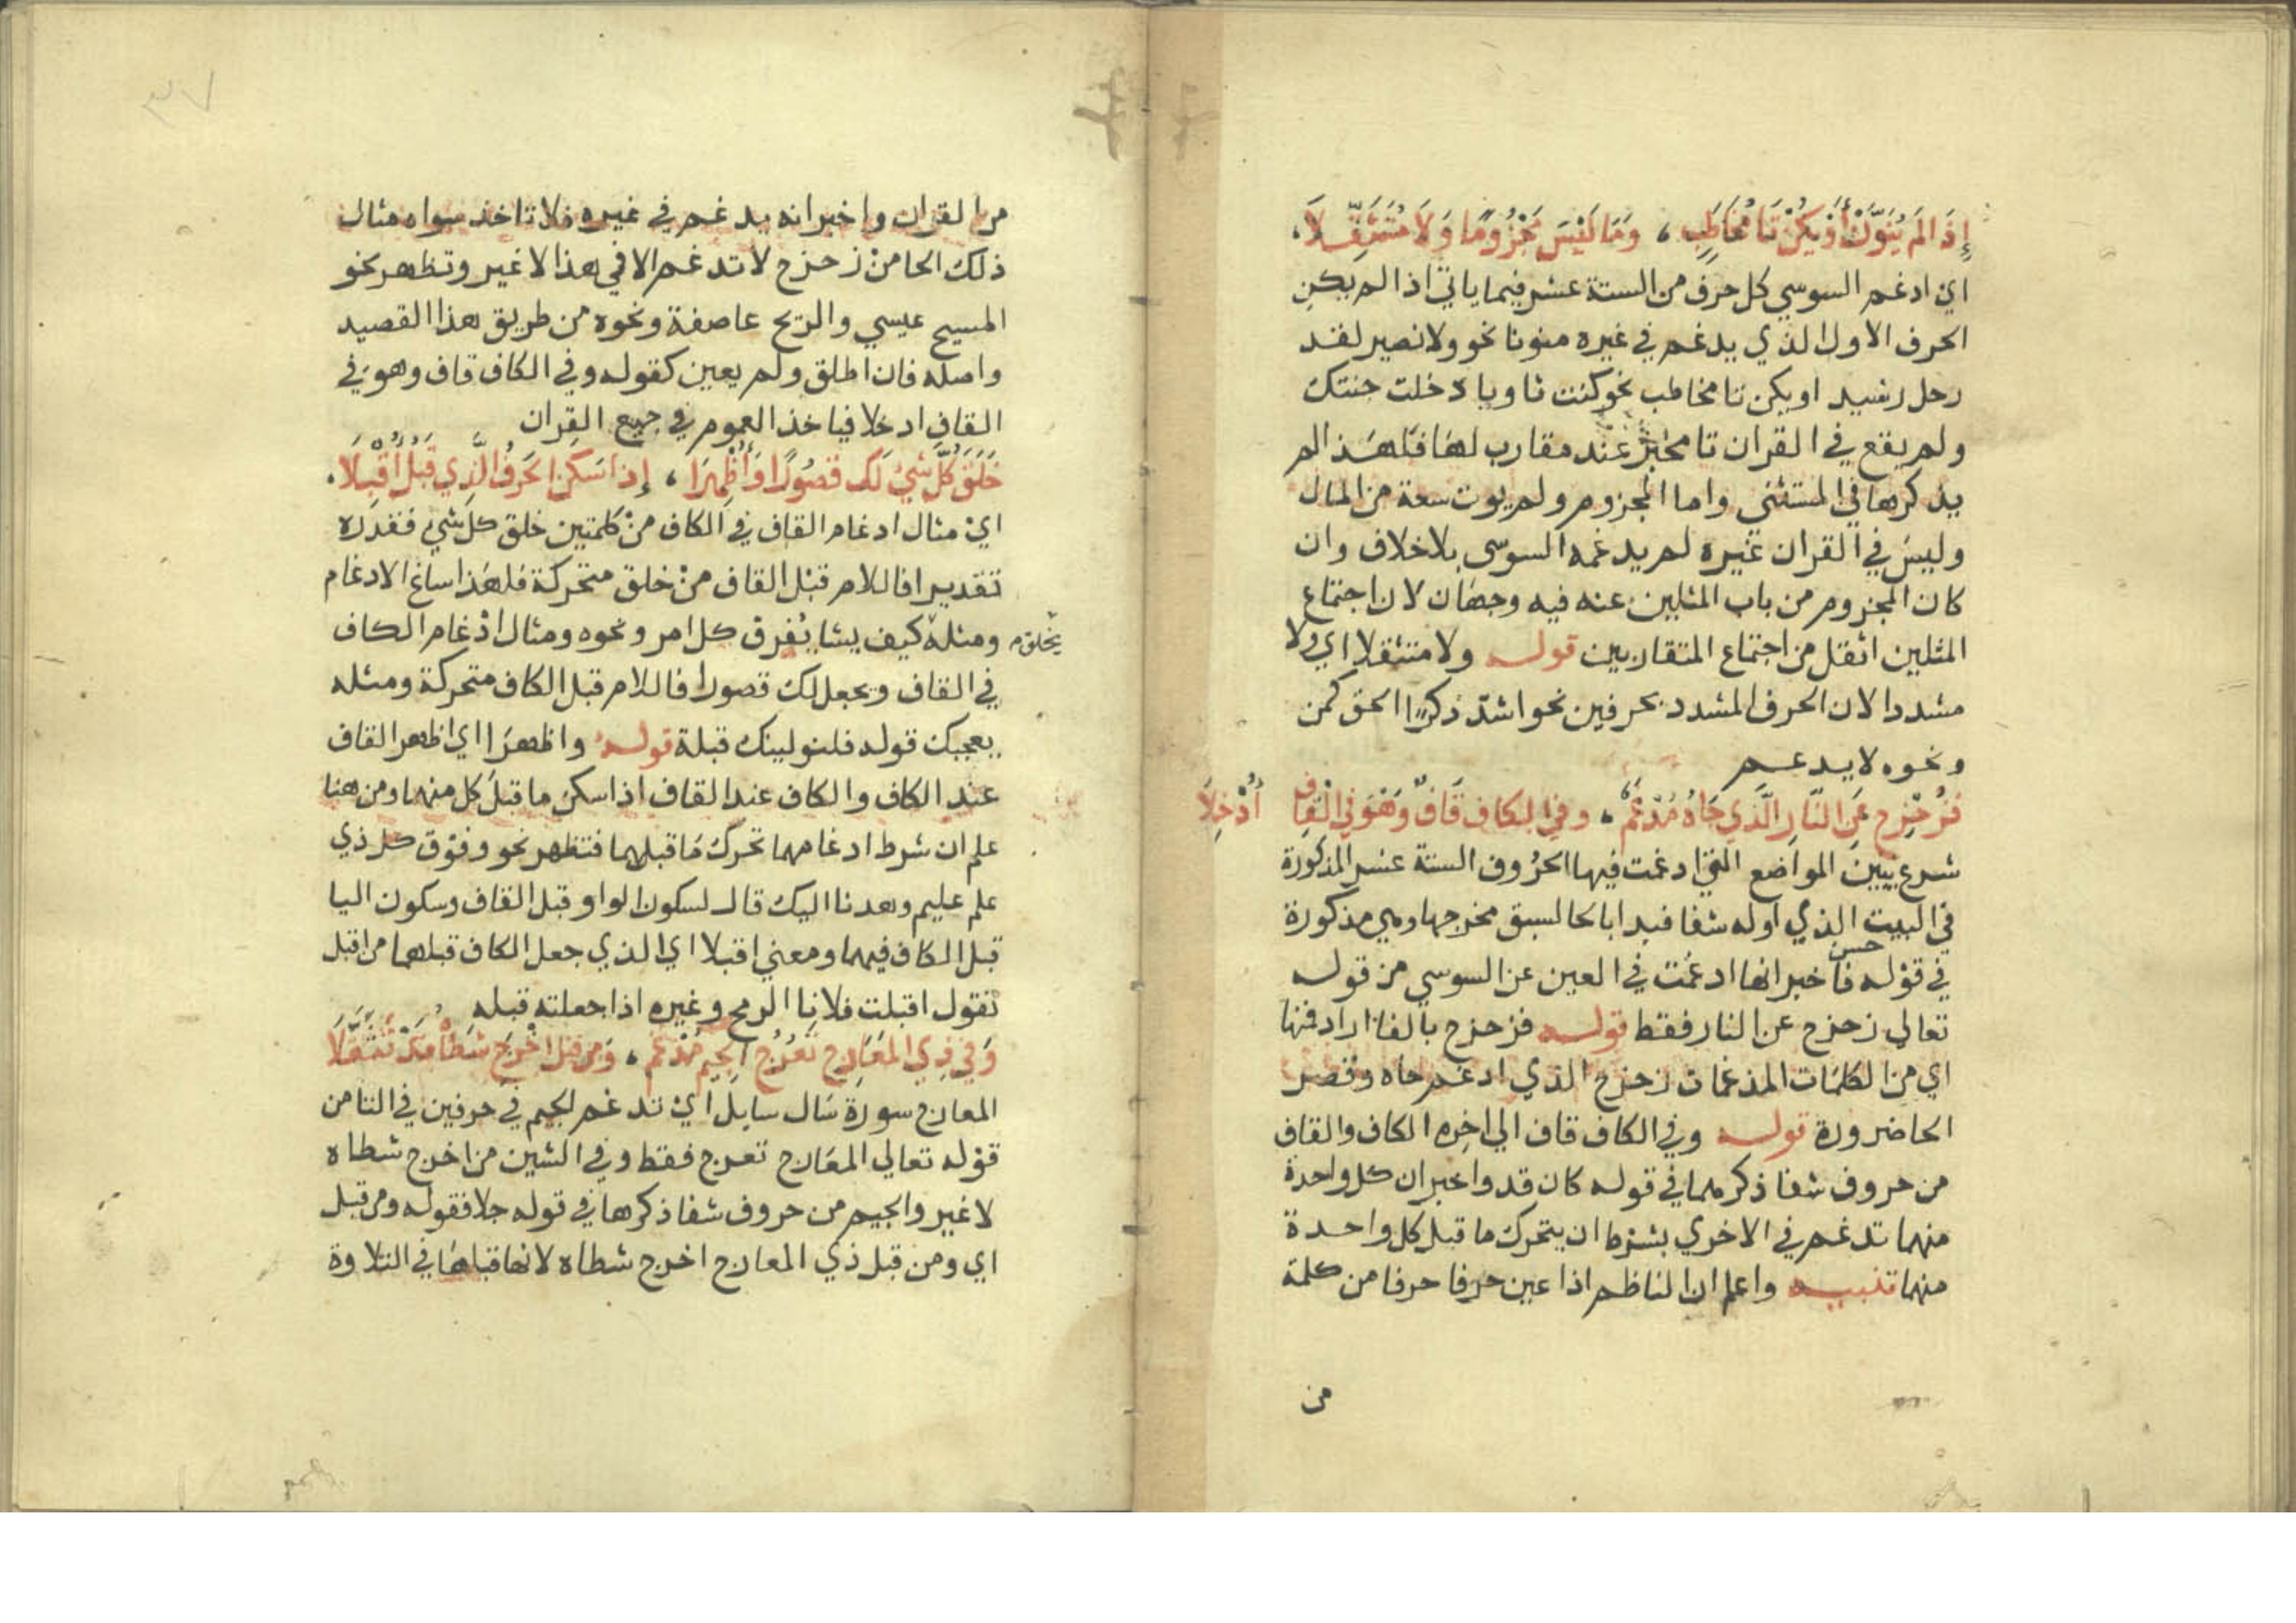 إِذَا لَمْ يُنَوَّنْ أَوْ يَكُنْ تَا مُخَاطَبٍ ، وَمَا لَيْسَ مَجْزُومًا وَلَا مُتَثَقِّلَا ،
اي ادغم السوسي كل حرف من الستة عشر فيما ياتي اذا لم يكن
الحرف الاول الذي يدغم في غيره منونا نحو ولا نصير لقد
رجل رشيد او يكن تا مخاطب نحو كنت ثاويا دخلت جنتك
ولم يقع في القران تا مخبر عند مقارب لها فلهذا لم
يذكرها في المستثنى واما المجزوم ولم يوت سعة من المال
وليس في القران غيره لم يدغمه السوسي بلا خلاف وان
كان المجزوم من باب المثلين عنه فيه وجهان لان اجتماع
المثلين اثقل من اجتماع المتقاربين قوله ولا متثقلا اي ولا
مشددا لان الحرف المشدد بحرفين نحو اشد ذكرا الحق كمن
ونحوه لا يدغم
فَزُحْزِحَ عَنِ النَّارِ الَّذِي حَاهُ مُدْغَمٌ ، وفي الكاف قَافٌ وَهْوَ فِي الْقَافِ أُدْخِلَا
شرع يبين المواضع التي ادغمت فيها الحروف الستة عشر المذكورة
في البيت الذي اوله شفا فبدا بالحا لسبق مخرجها وهي مذكورة
في قوله حسن فاخبر انها ادغمت في العين عن السوسي من قوله
تعالي زحزح عن النار فقط قوله فزحزح بالفا اراد فمنها
اي من الكلمات المدغمات زحزح الذي ادغم حاه وقصر
الحا ضرورة قوله وفي الكاف قاف الي اخره الكاف والقاف
من حروف شفا ذكرهما في قوله كان قد واخبر ان كل واحدة
منهما تدغم في الاخري بشرط ان يتحرك ما قبل كل واحدة
منهما تنبيه واعلم ان الناظم اذا عين حرفا حرفا من كلمة
من
من القران واخبر انه يدغم في غيره فلا تاخذ سواه مثال
ذلك الحا من زحزح لا تدغم الا في هذا لا غير وتظهر نحو
المسيح عيسي والريح عاصفة ونحوه من طريق هذا القصيد
واصله فان اطلق ولم يعين كقوله وفي الكاف قاف وهو في
القاف ادخلا فياخذ العموم في جميع القران
خَلَقَ كُلَّ شَيْ لَكَ قُصُورًا وَأَظْهِرَا ، إِذَا سَكَنَ الْحَرْفُ الَّذِي قَبْلُ أُقْبِلَا .
اي مثال ادغام القاف في الكاف من كلمتين خلق كل شي فقدره
تقديرا فاللام قبل القاف من خلق متحركة فلهذا ساغ الادغام
يخلق م
ومثله كيف يشا يفرق كل امر ونحوه ومثال ادغام الكاف
في القاف ويجعل لك قصورا فاللام قبل الكاف متحركة ومثله
يعجبك قوله فلنولينك قبلة قوله واظهرا اي اظهر القاف
عند الكاف والكاف عند القاف اذا سكن ما قبل كل منهما ومن هنا
علم ان شرط ادغامهما تحرك ما قبلهما فتظهر نحو وفوق كل ذي
علم عليم وهدنا اليك قال لسكون الواو قبل القاف وسكون اليا
قبل الكاف فيهما ومعني اقبلا اي الذي جعل الكاف قبلهما من اقبل
تقول اقبلت فلانا الرمح وغيره اذا جعلته قبله
وَفِي ذِي الْمَعَارِجِ تَعْرُجُ الْجِيمُ مُدْغَمٌ ، وَمِنْ قَبْلُ أَخْرَجَ شَطْأَهُ قَدْ تَثَقَّلَا
المعارج سورة سال سايل اي تدغم الجيم في حرفين في التا من
قوله تعالي المعارج تعرج فقط وفي الشين من اخرج شطاه
لا غير والجيم من حروف شفا ذكرها في قوله جلا فقوله ومن قبل
اي ومن قبل ذي المعارج اخرج شطاه لانها قبلها في التلاوة